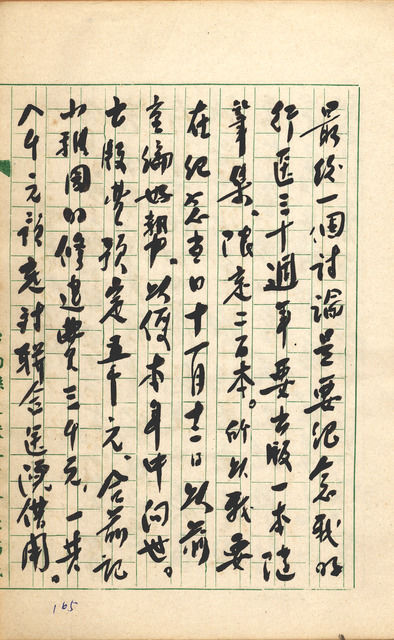 最後一個討論是要紀念我的
行医三十週年要出版一本随
筆集、限定二百本。所以我要
在紀念当日十一月十二日以前
主編好勢。以便本年中问世。
出版費預定五千元、合前記
小祖国的修建費三千元、一共
八千元預定對聯合医院借用。
165